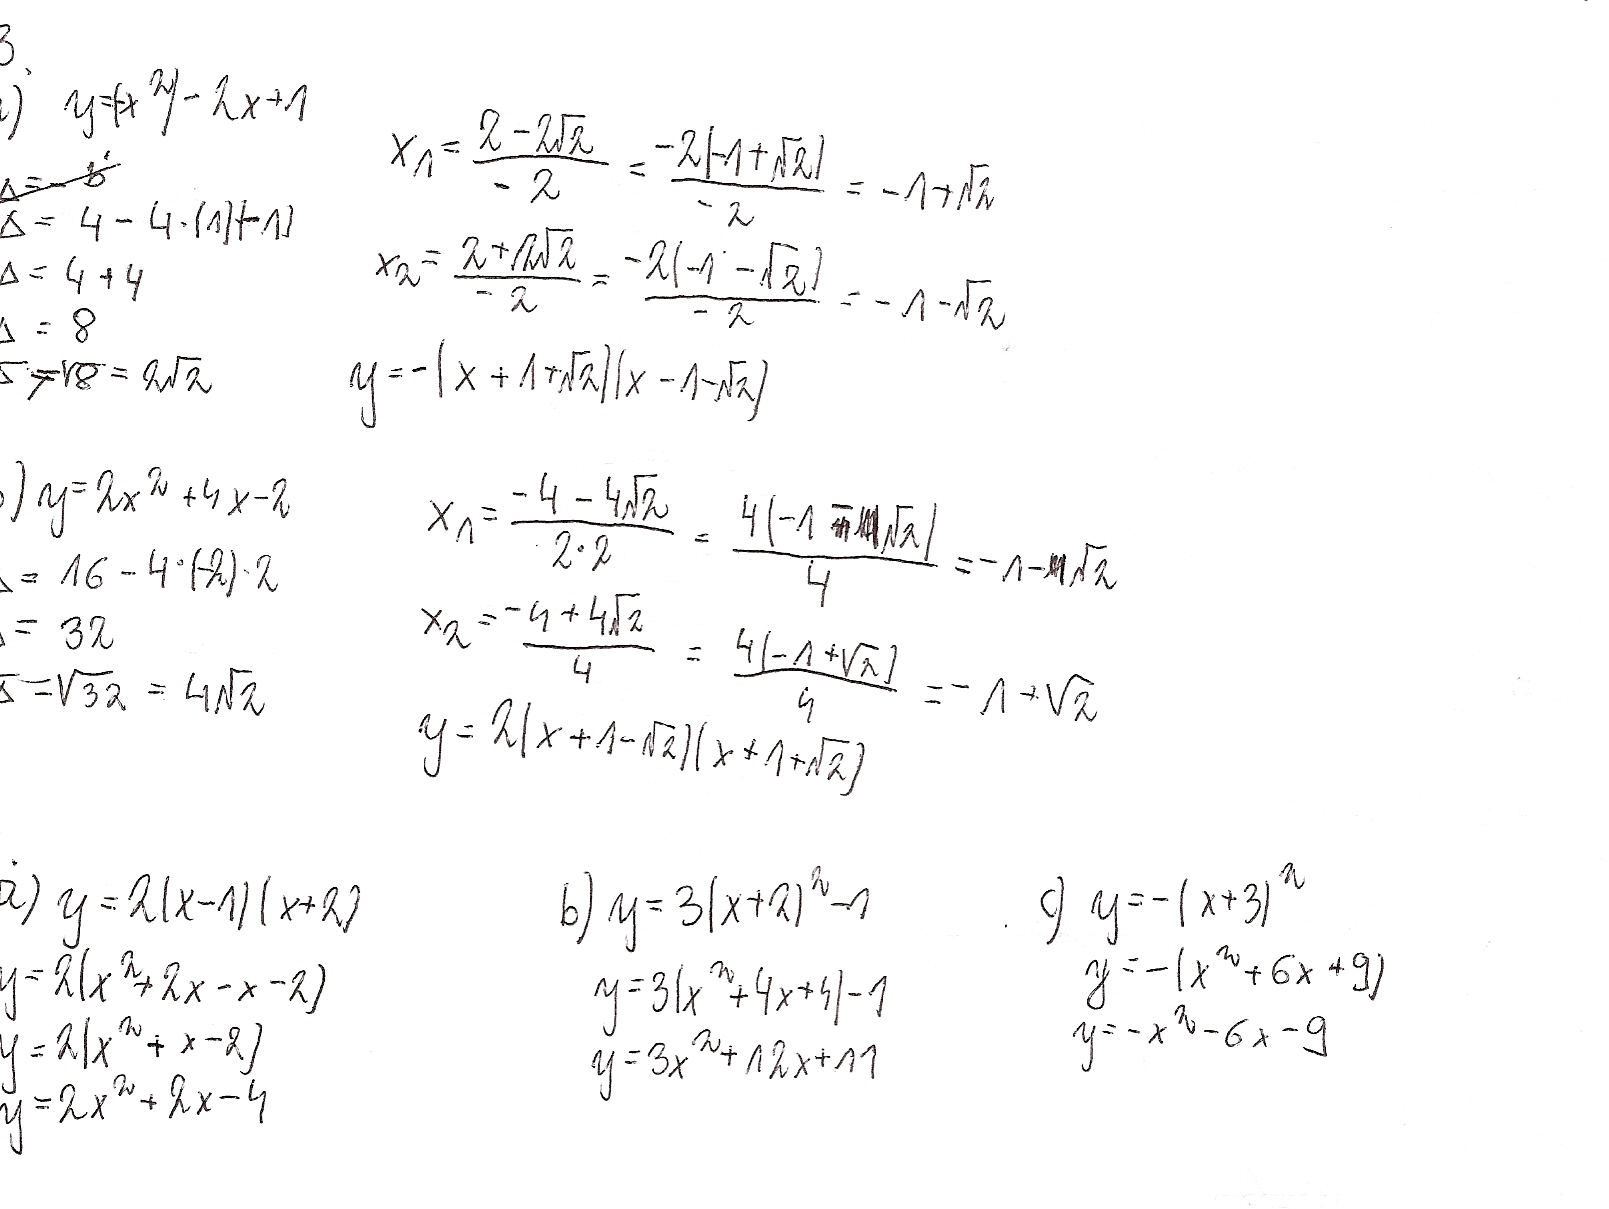 3.
a) y=(-x²)-2x+1
Δ = 4 - 4·(1)(-1)
Δ = 4 + 4
Δ = 8
√Δ = √8 = 2√2
x₁ = (2 - 2√2)/(-2) = (-2(-1+√2))/(-2) = -1+√2
x₂ = (2+2√2)/(-2) = (-2(-1-√2))/(-2) = -1-√2
y = -(x+1+√2)(x-1-√2)
b) y=2x²+4x-2
Δ = 16 - 4·(-2)·2
Δ = 32
√Δ = √32 = 4√2
x₁ = (-4-4√2)/(2·2) = (4(-1-√2))/4 = -1-√2
x₂ = (-4+4√2)/4 = (4(-1+√2))/4 = -1+√2
y = 2(x+1-√2)(x+1+√2)
a) y=2(x-1)(x+2)
y=2(x²+2x-x-2)
y=2(x²+x-2)
y=2x²+2x-4
b) y=3(x+2)²-1
y=3(x²+4x+4)-1
y=3x²+12x+11
c) y=-(x+3)²
y=-(x²+6x+9)
y=-x²-6x-9